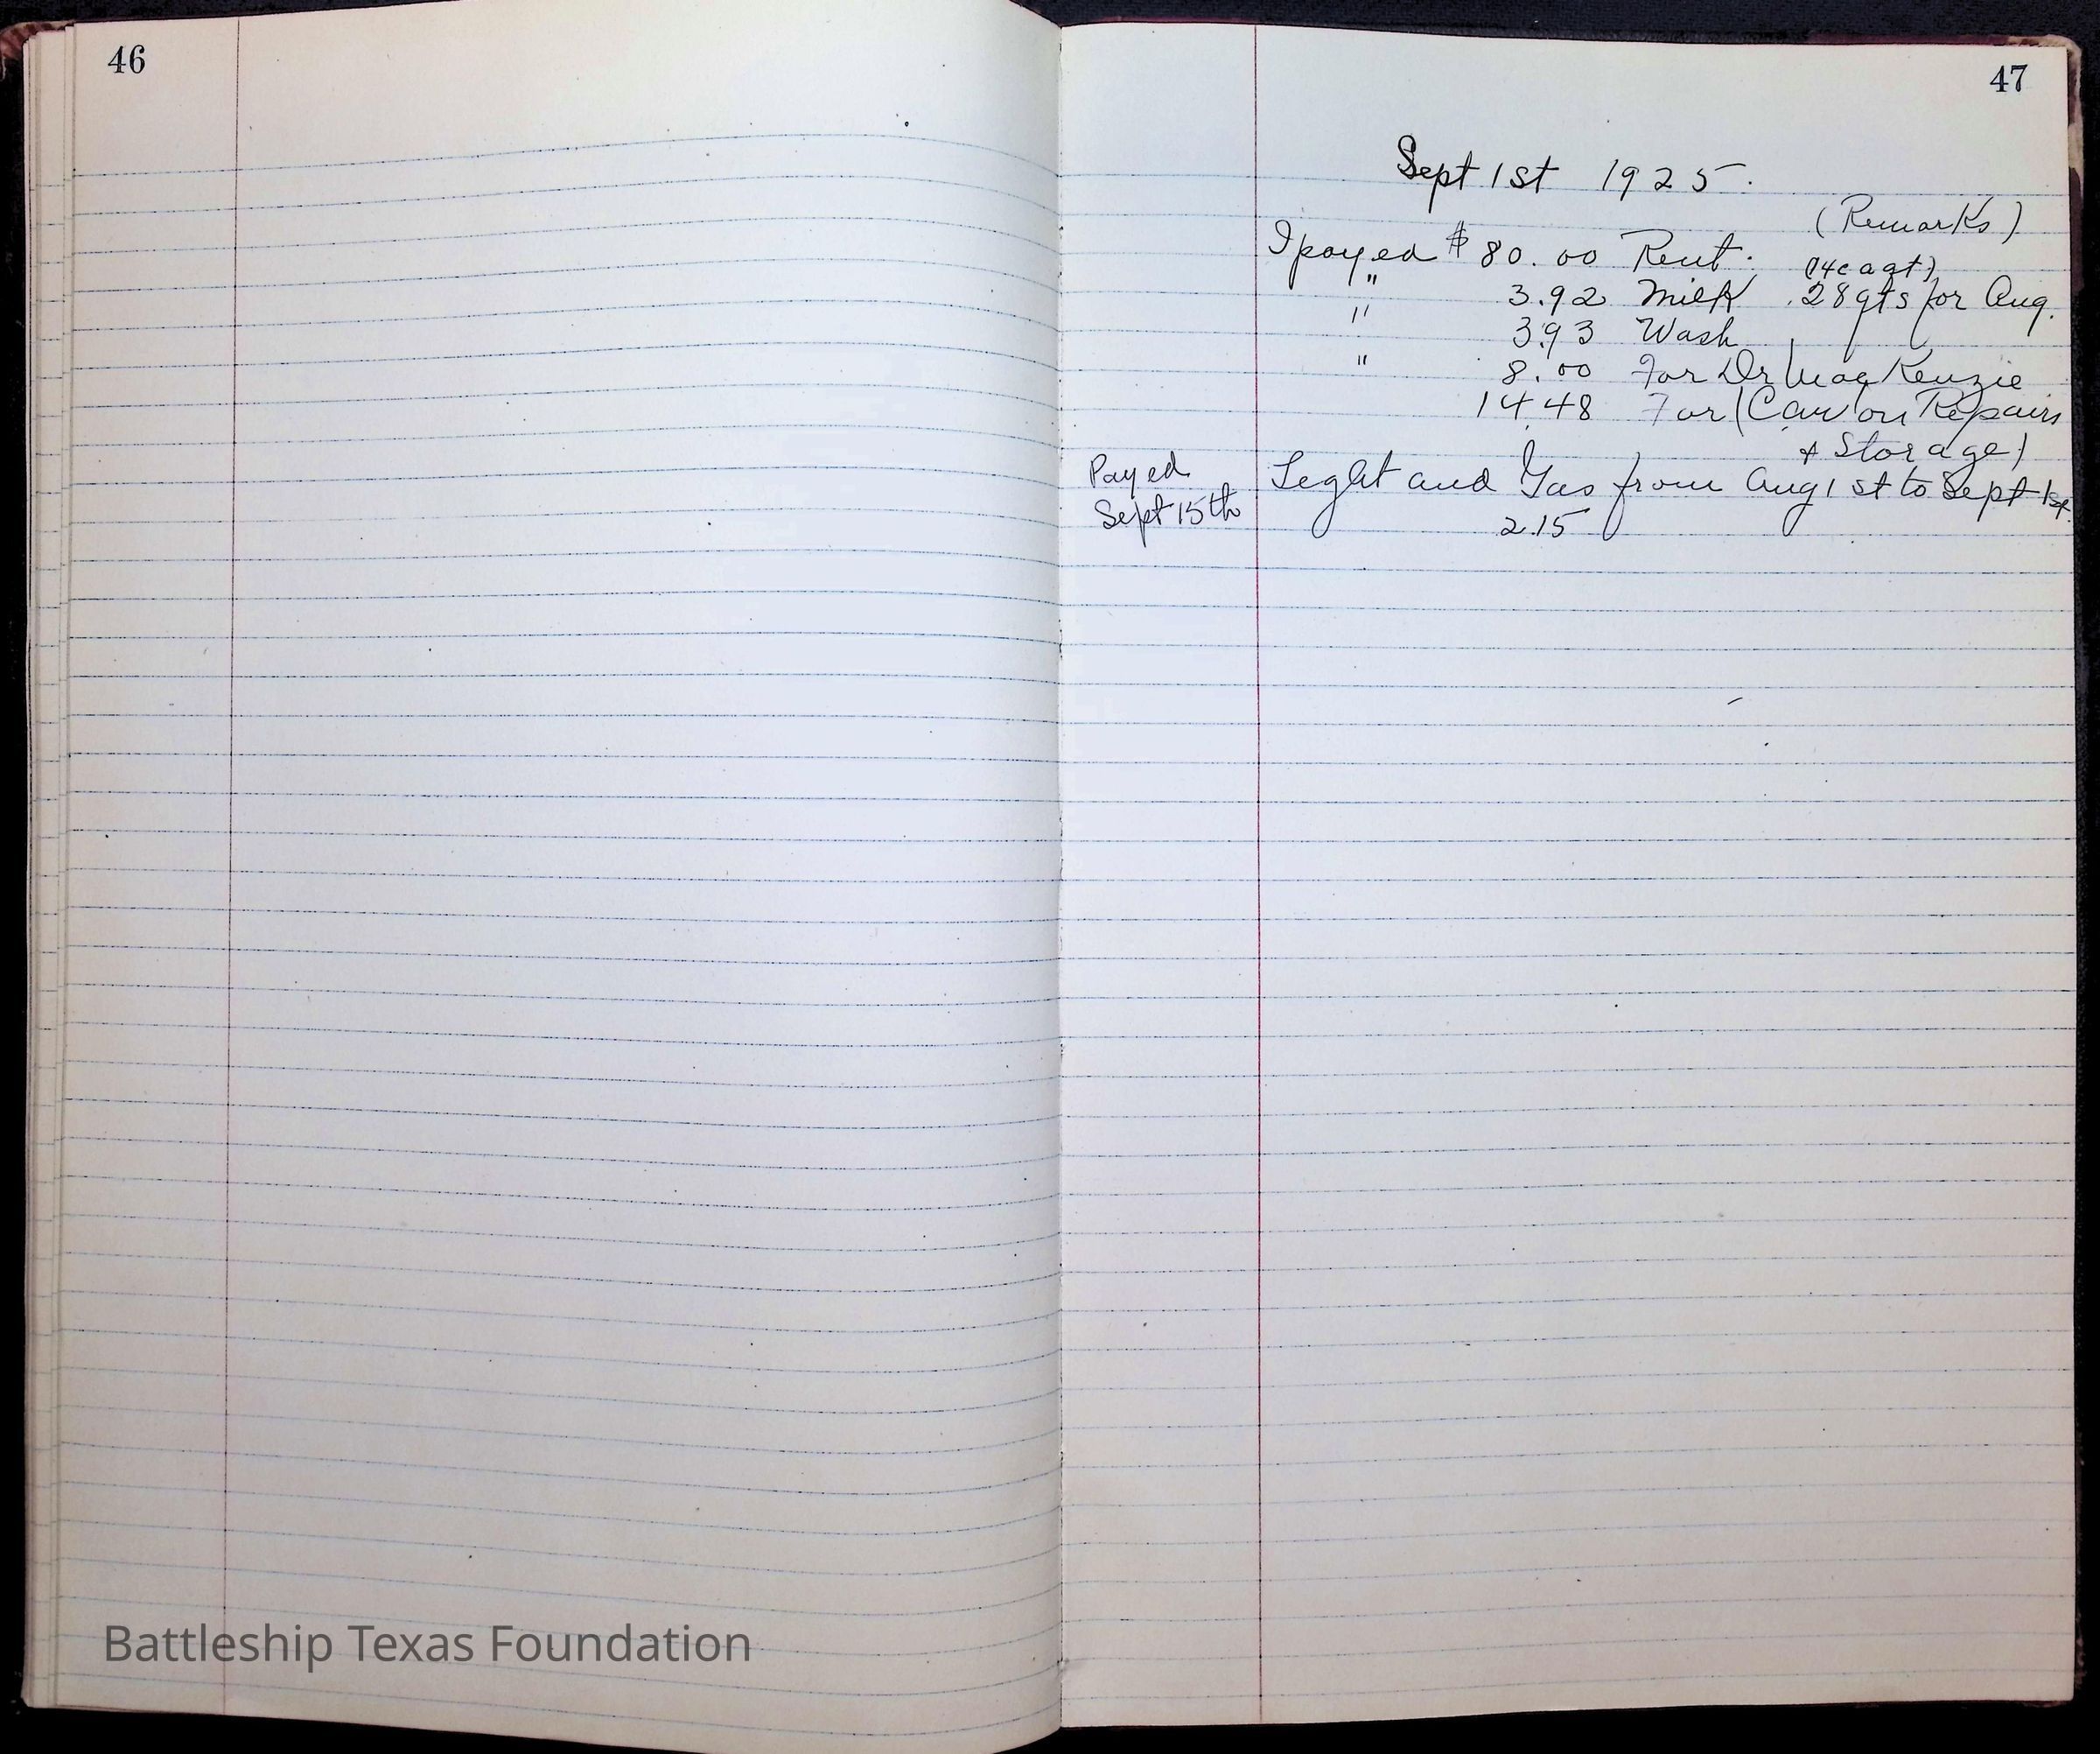 46
47
Sept 1st 1925.
(Remarks)
I payed $ 80.00 Rent.
(14c a qt)
" 3.92 Milk 28 qts for Aug.
" 3.93 Wash
" 8.00 For Dr MacKenzie
14.48 For (Car on Repairs
& Storage)
Payed
Sept 15th
Leght and Gas from Aug 1st to Sept 1st.
2.15
Battleship Texas Foundation